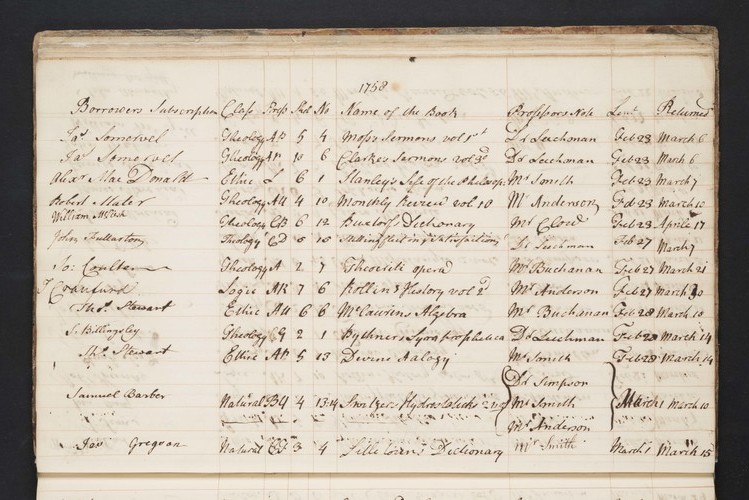 1758
Borrowers Subscription Class Press Shel No Name of the Book Professors Note Lent Returned
Jas Somervel Theology AR 5 4 Moss's Sermons vol 1st Dr Leechman Feb 23 March 6
Jas Somervel Theology AR 10 6 Clarkes Sermons vol 3d Dr Leechman Feb 23 March 6
Alexr Mac Donald Ethic L 6 1 Stanley's Life of the Philosop: Mr Smith Feb 23 March 7
Robert Muter Theology AU 4 10 Monthly Review vol 10 Mr Anderson Feb 23 March 10
William Theology 6 12 Buxtorf Dictionary Mr Clow Feb 23 Aprile 17
John Fullarton Theology 5 10 Dr Leechman Feb 27 March 7
Jo: Coulter Theology A 2 7 Theoriti opera Mr Buchanan Feb 27 March 21
Crawfurd Logic AR 7 6 Rollin's History vol 2d Mr Anderson Feb 27 March 20
Thos. Stewart Ethic AU 6 6 McLawrens Algebra Mr Buchanan Feb 28 March 10
S. Billingsley Theology 2 1 Bythners Lyra prophetica Dr Leechman Feb 28 March 14
Thos. Stewart Ethic AR 5 13 Mr Smith Feb 28 March 14
Dr Simpson
Samuel Barber Natural B4 4 13-14 Switzer Hydrostaticks Mr Smith March 1 March 10
Mr Anderson
Natural 3 4 Dictionary Mr Smith March 1 March 15